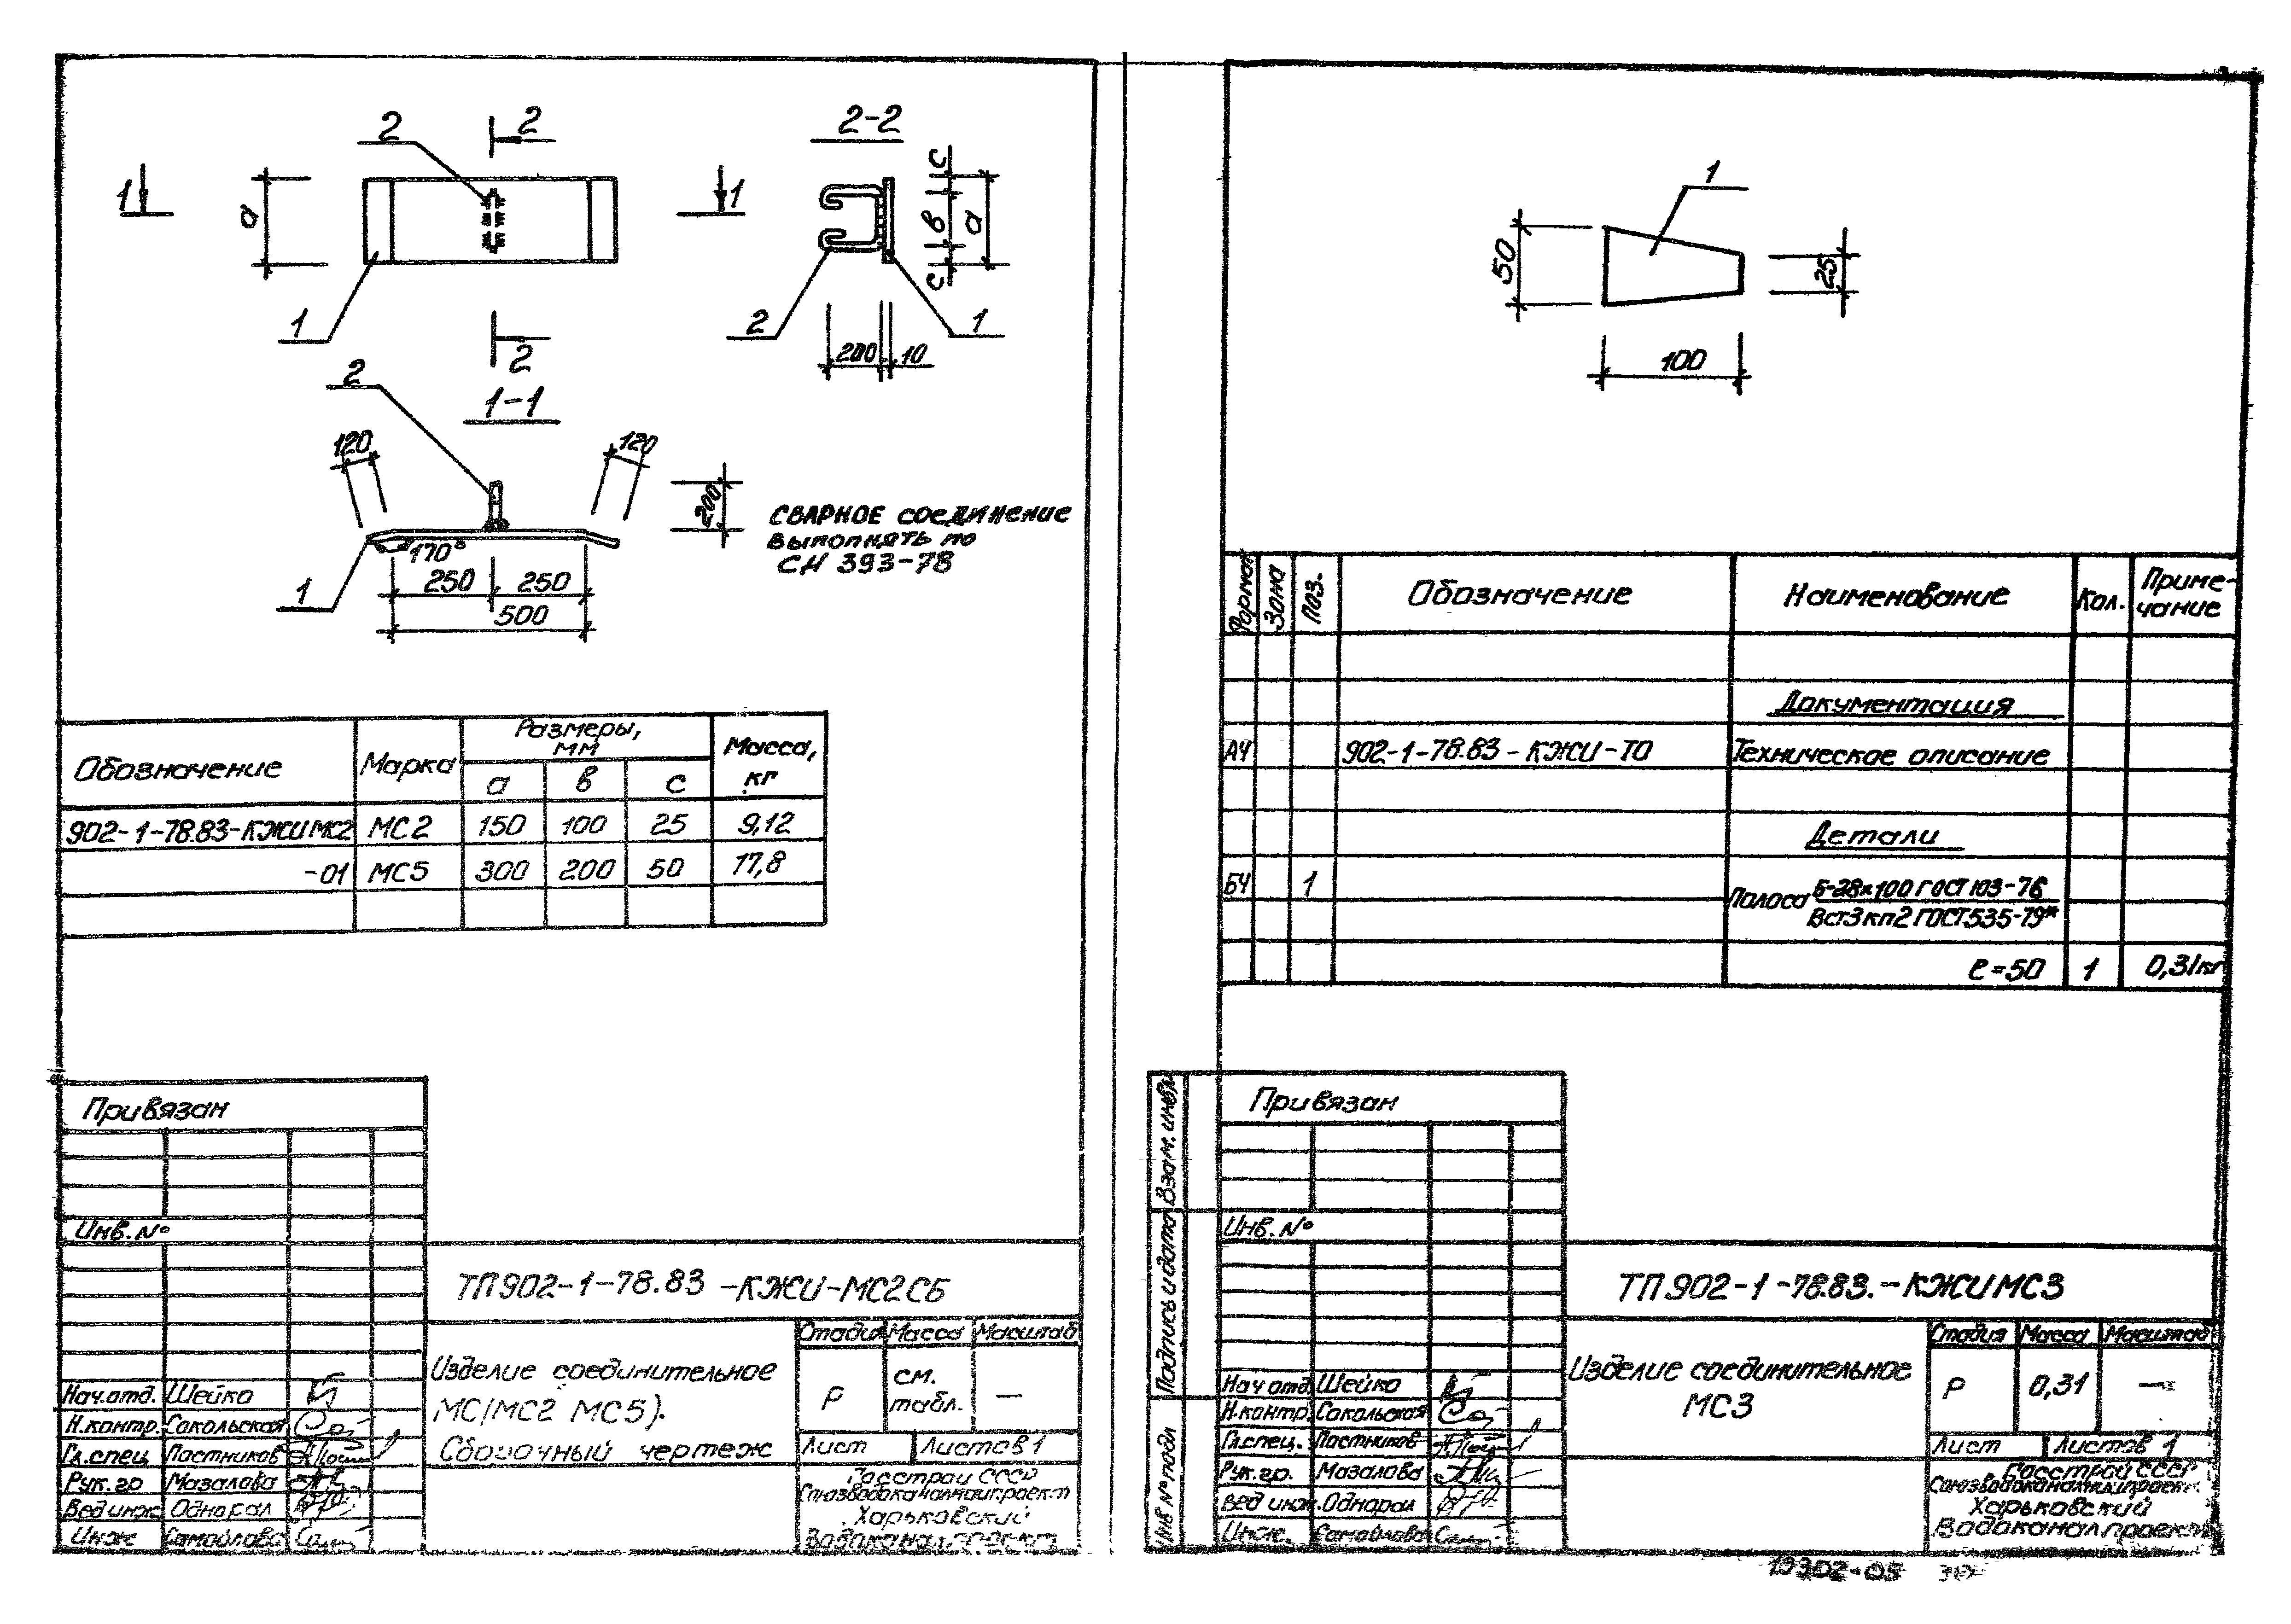 2
2
2-2
1
1
а
1
2
2
1
с
в
а
с
200
10
1-1
2
120
120
200
170°
1
250
250
500
СВАРНОЕ СОЕДИНЕНИЕ
ВЫПОЛНЯТЬ ПО
СН 393-78
Обозначение
Марка
Размеры,
мм
Масса,
кг
а
в
с
902-1-78.83-КЖИ МС2
МС2
150
100
25
9,12
-01
МС5
300
200
50
17,8
Привязан
Инв. №
ТП 902-1-78.83 -КЖИ-МС2СБ
Изделие соединительное
МС(МС2 МС5).
Сборочный чертеж
Стадия
Масса
Масштаб
Р
см.
табл.
—
Лист
Листов 1
Госстрой СССР
Союзводоканалниипроект
Харьковский
Водоканалпроект
Нач.отд.
Шейко
Н.контр.
Сокольская
Гл.спец
Постников
Рук.гр
Мазалова
Вед инж
Однорал
Инж
Самойлова
1
50
25
100
Формат
Зона
Поз.
Обозначение
Наименование
Кол.
Приме-
чание
Документация
А4
902-1-78.83-КЖИ-ТО
Техническое описание
Детали
БЧ
1
Полоса
Б-28х100 ГОСТ 103-76
Вст3кп2 ГОСТ535-79*
ℓ=50
1
0,31кг
Взам. инв.
Подпись и дата
Инв № подл
Привязан
Инв. №
ТП 902-1-78.83.-КЖИ МС3
Изделие соединительное
МС3
Стадия
Масса
Масштаб
Р
0,31
—
Лист
Листов 1
Госстрой СССР
Союзводоканалниипроект
Харьковский
Водоканалпроект
Нач отд.
Шейко
Н.контр.
Сокольская
Гл.спец.
Постников
Рук.гр.
Мазалова
Вед инж.
Однорал
Инж.
Самойлова
19302-05